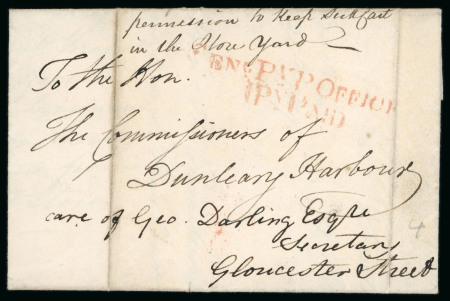 permission to keep
in the Store Yard
To the Hon.
PY P OFFICE
PY PAID
The Commissioners of
Dunleary Harbour
care of Geo. Darling Esqre
Secretary
Gloucester Street
4